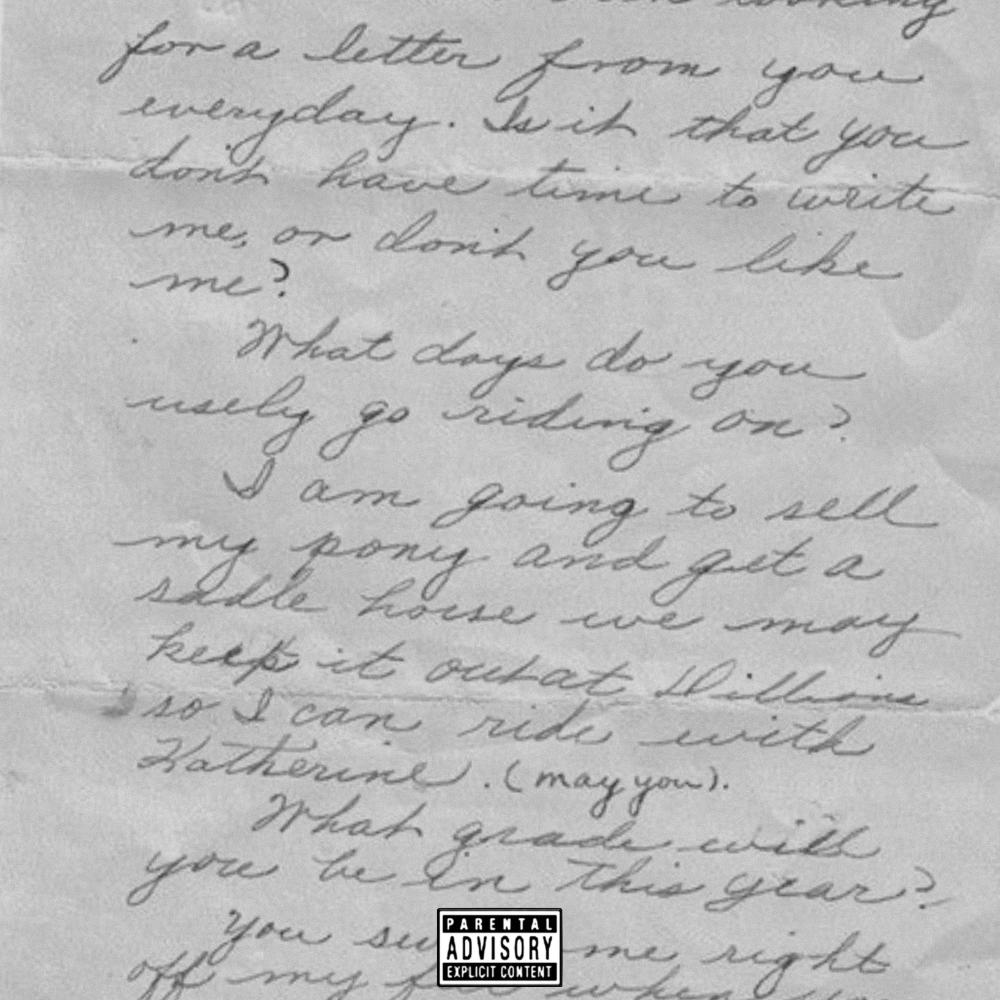 looking
for a letter from you
everyday. Is it that you
dont have time to write
me, or don't you like
me?
What days do you
usely go riding on?
I am going to sell
my pony and get a
sadle horse we may
keep it out at Dillions
so I can ride with
Katherine. (may you).
What grade will
you be in this year?
You me right
off my when
PARENTAL
ADVISORY
EXPLICIT CONTENT